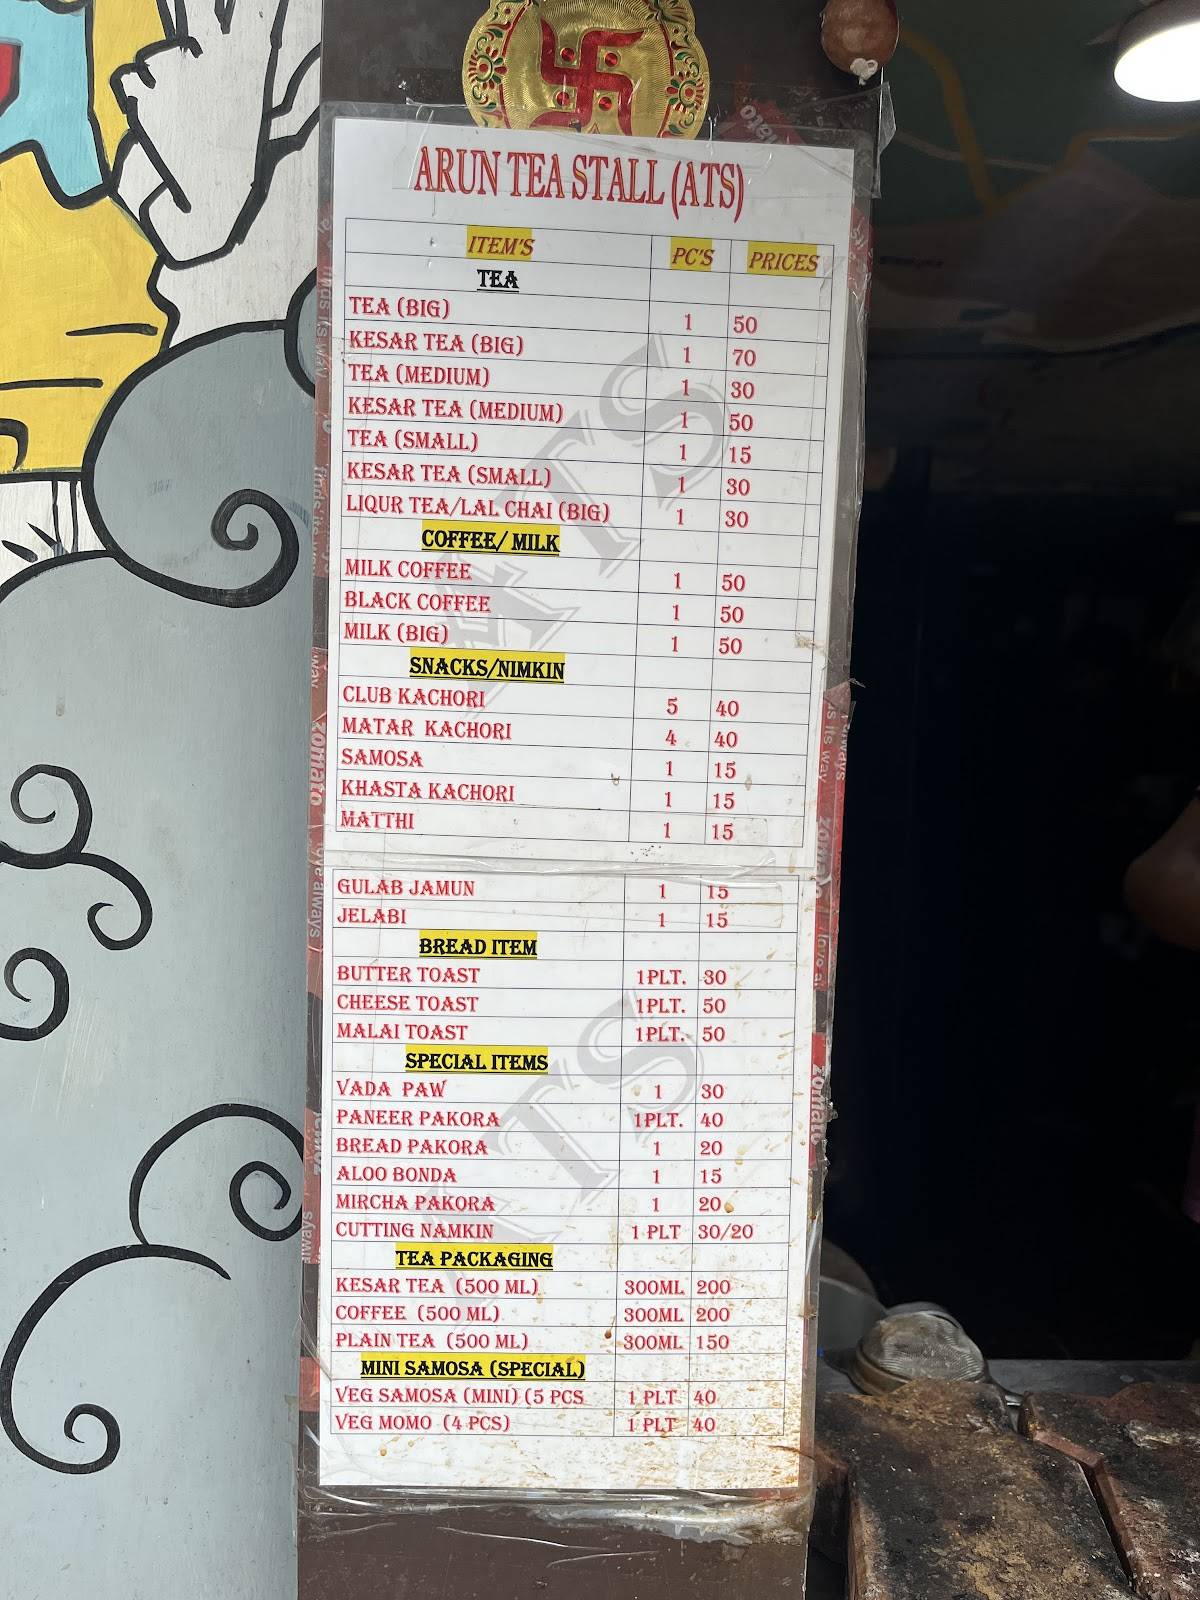 ARUN TEA STALL (ATS)
ITEM'S PC'S PRICES
TEA
TEA (BIG) 1 50
KESAR TEA (BIG) 1 70
TEA (MEDIUM) 1 30
KESAR TEA (MEDIUM) 1 50
TEA (SMALL) 1 15
KESAR TEA (SMALL) 1 30
LIQUR TEA/LAL CHAI (BIG) 1 30
COFFEE/ MILK
MILK COFFEE 1 50
BLACK COFFEE 1 50
MILK (BIG) 1 50
SNACKS/NIMKIN
CLUB KACHORI 5 40
MATAR KACHORI 4 40
SAMOSA 1 15
KHASTA KACHORI 1 15
MATTHI 1 15
GULAB JAMUN 1 15
JELABI 1 15
BREAD ITEM
BUTTER TOAST 1PLT. 30
CHEESE TOAST 1PLT. 50
MALAI TOAST 1PLT. 50
SPECIAL ITEMS
VADA PAW 1 30
PANEER PAKORA 1PLT. 40
BREAD PAKORA 1 20
ALOO BONDA 1 15
MIRCHA PAKORA 1 20
CUTTING NAMKIN 1 PLT 30/20
TEA PACKAGING
KESAR TEA (500 ML) 300ML 200
COFFEE (500 ML) 300ML 200
PLAIN TEA (500 ML) 300ML 150
MINI SAMOSA (SPECIAL)
VEG SAMOSA (MINI) (5 PCS 1 PLT 40
VEG MOMO (4 PCS) 1 PLT 40
ATS
ATS
zomato
zomato